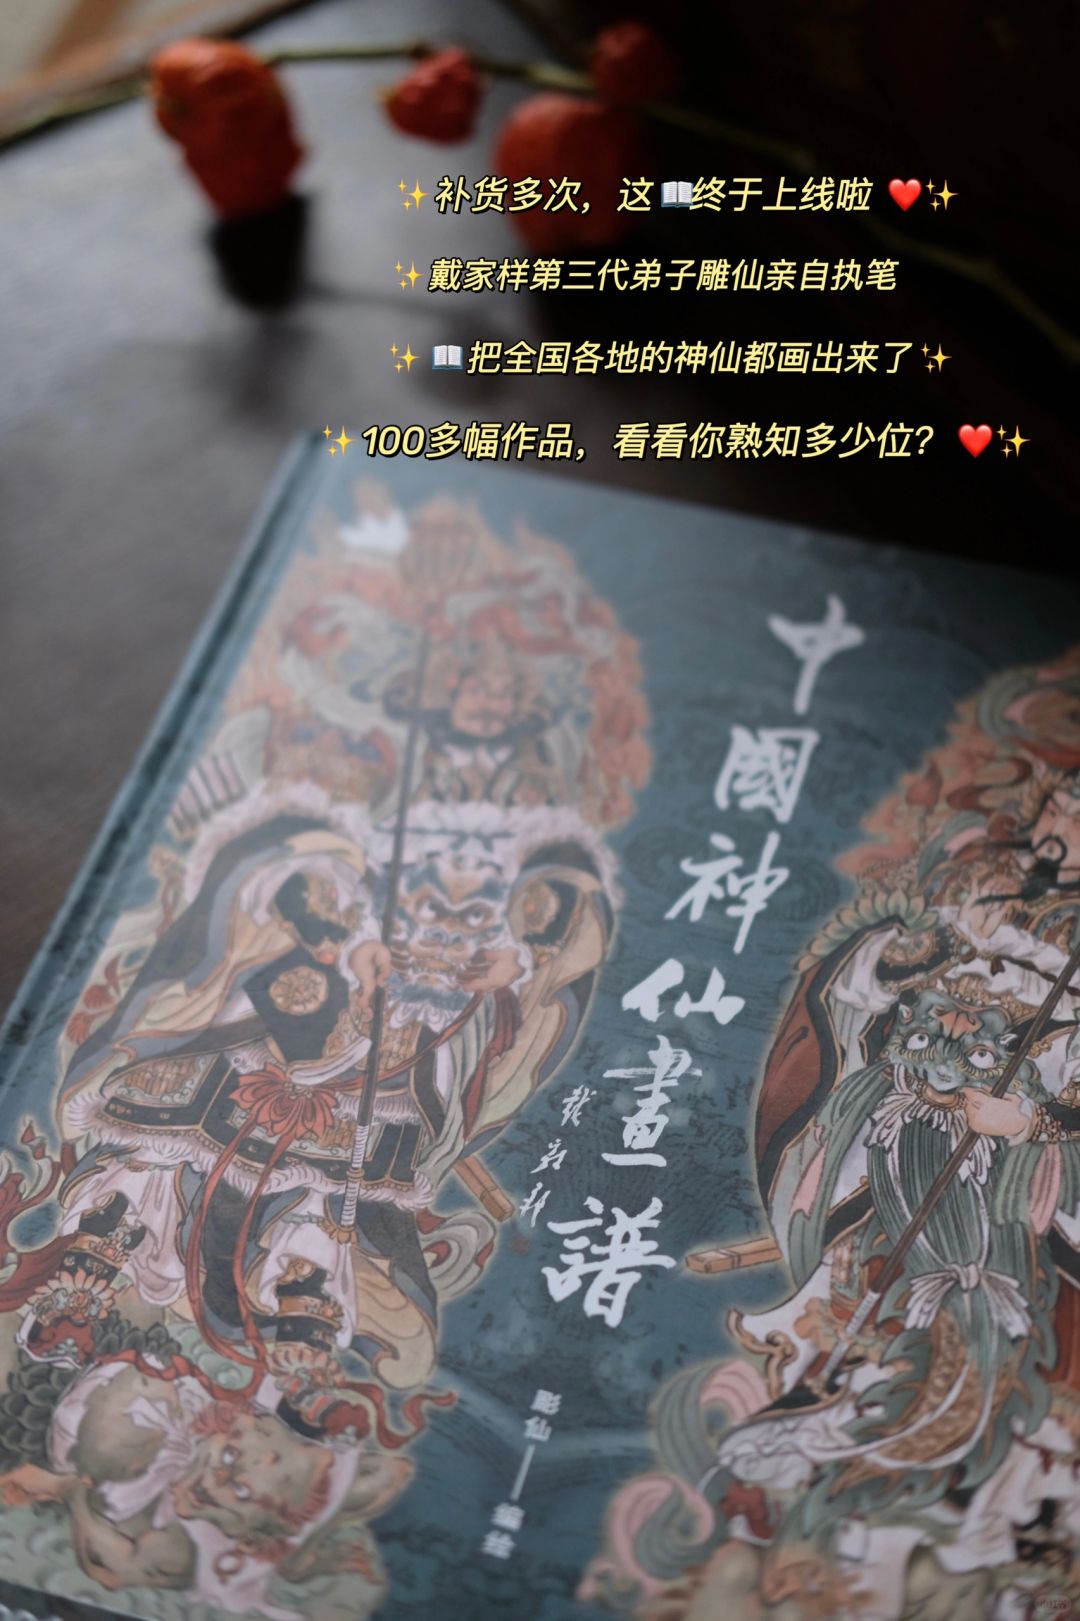 ✨补货多次，这📖终于上线啦 ❤️✨
✨戴家样第三代弟子雕仙亲自执笔
✨📖把全国各地的神仙都画出来了✨
✨100多幅作品，看看你熟知多少位？ ❤️✨
中國神仙畫譜
彫仙——编绘